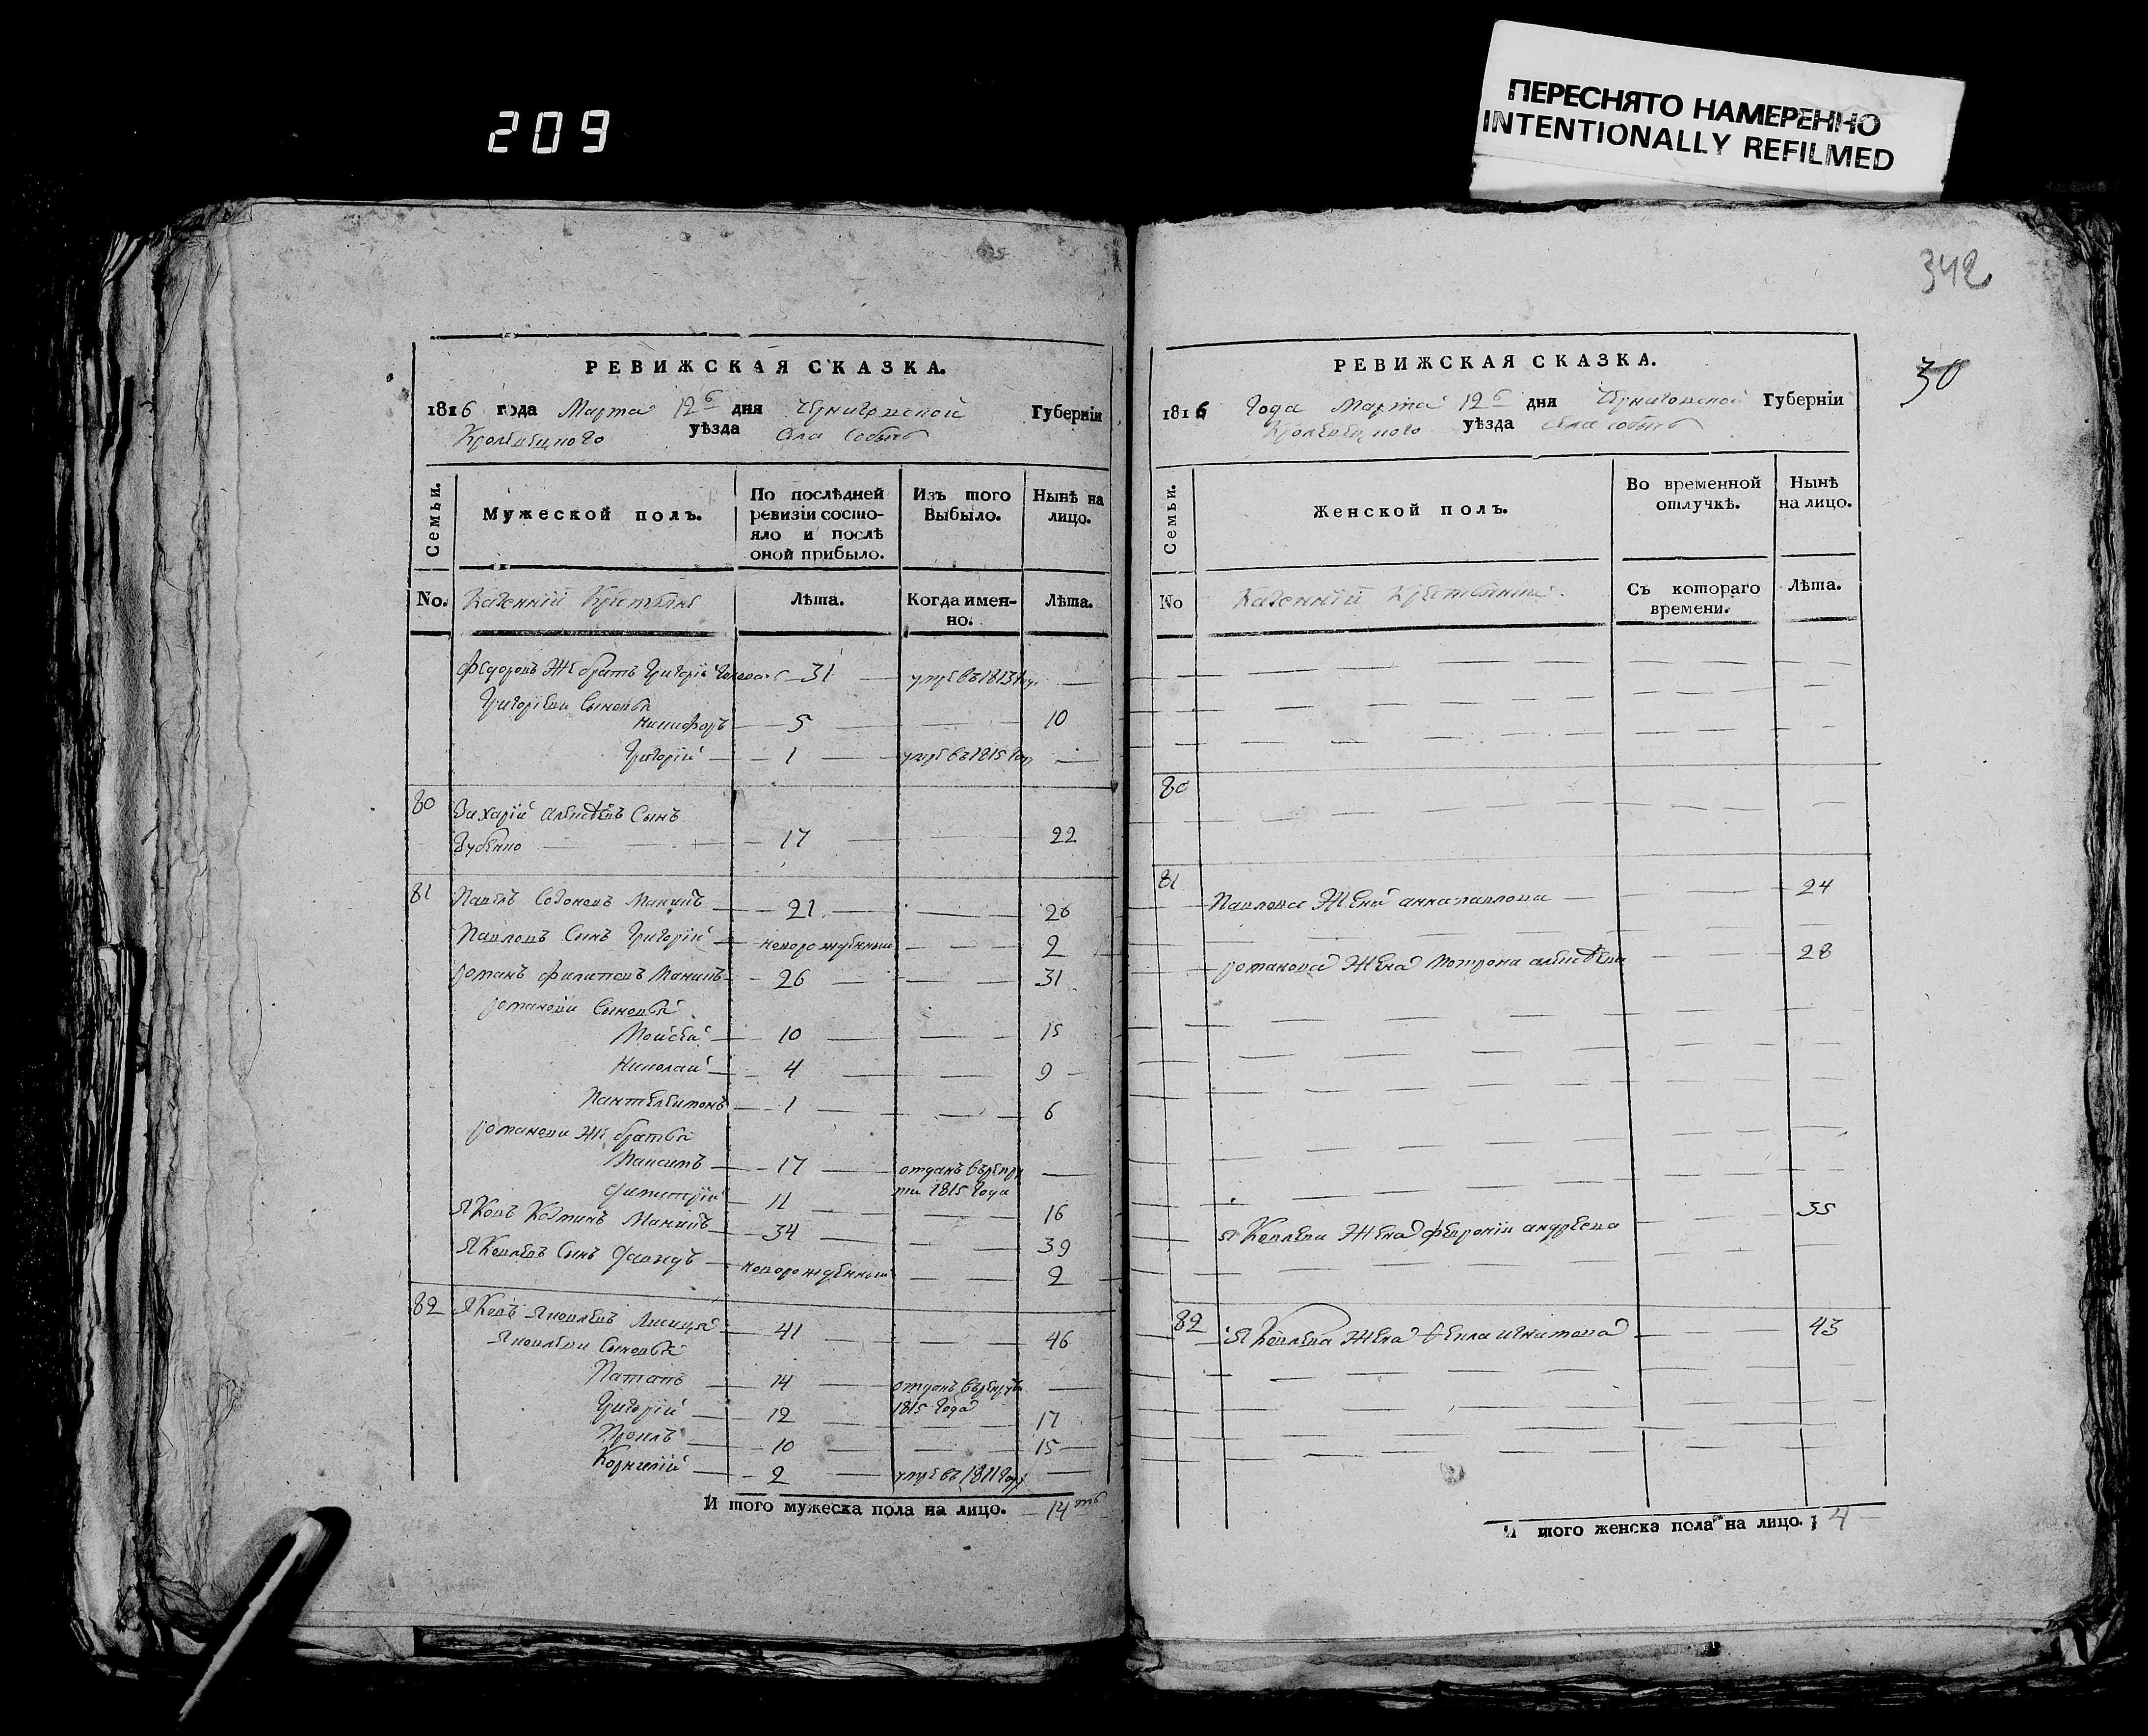 209
ПЕРЕСНЯТО НАМЕРЕННО
INTENTIONALLY REFILMED
342
30
РЕВИЖСКАЯ СКАЗКА.
1816 года Марта 12 дня Черниговской Губерніи
Кролевецкого уѣзда Села Собычъ
Семьи.
Мужеской полъ.
По послѣдней ревизіи состо-
яло и послѣ
оной прибыло.
Изъ того
Выбыло.
Нынѣ на
лицо.
No. Казенніи Крестьяне
Лѣта.
Когда имен-
но.
Лѣта.
Федоровъ же братъ Григорій — 31 — умре въ 1813 —
Григорьеви Сыновья
Никифоръ — 5 — 10
Григорій — 1 — умре въ 1815 —
80 Захарій Алексѣевъ Сынъ
Зубенко — 17 — 22
81 Павелъ Созоновъ — 21 — 26
Павловъ Сынъ Григорій — новорожденный — 2
Романъ Филиповъ — 26 — 31
Романови Сыновья
Мойсей — 10 — 15
Николай — 4 — 9
Пантелеимонъ — 1 — 6
Романови же братья
Максимъ — 17 — отданъ въ рекру
ти 1815 года
Димитрій — 11 — 16
Яковъ Козминъ — 34 — 39
Яковлевъ Сынъ Давидъ — новорожденный — 2
82 Яковъ Яковлевъ Лисица — 41 — 46
Яковлеви Сыновья
Патапъ — 14 — отданъ въ рекруты
1815 года
Григорій — 12 — 17
Проклъ — 10 — 15
Корнилій — 2 — умре въ 1811 году —
И того мужеска пола на лицо. — 14
РЕВИЖСКАЯ СКАЗКА.
1816 Года Марта 12 дня Черниговской Губерніи
Кролевецкого уѣзда Села Собычъ
Семьи.
Женской полъ.
Во временной
отлучкѣ.
Нынѣ
на лицо.
No Казенніи Крестьянки.
Съ котораго
времени.
Лѣта.
80
81
Павлова Жена Анна Павлова — 24
Романова Жена Мотрона Алексѣева — 28
Яковлева Жена Февронія Андреева — 35
82 Яковлева Жена Ѳекла Игнатова — 43
И того женска пола на лицо. 4